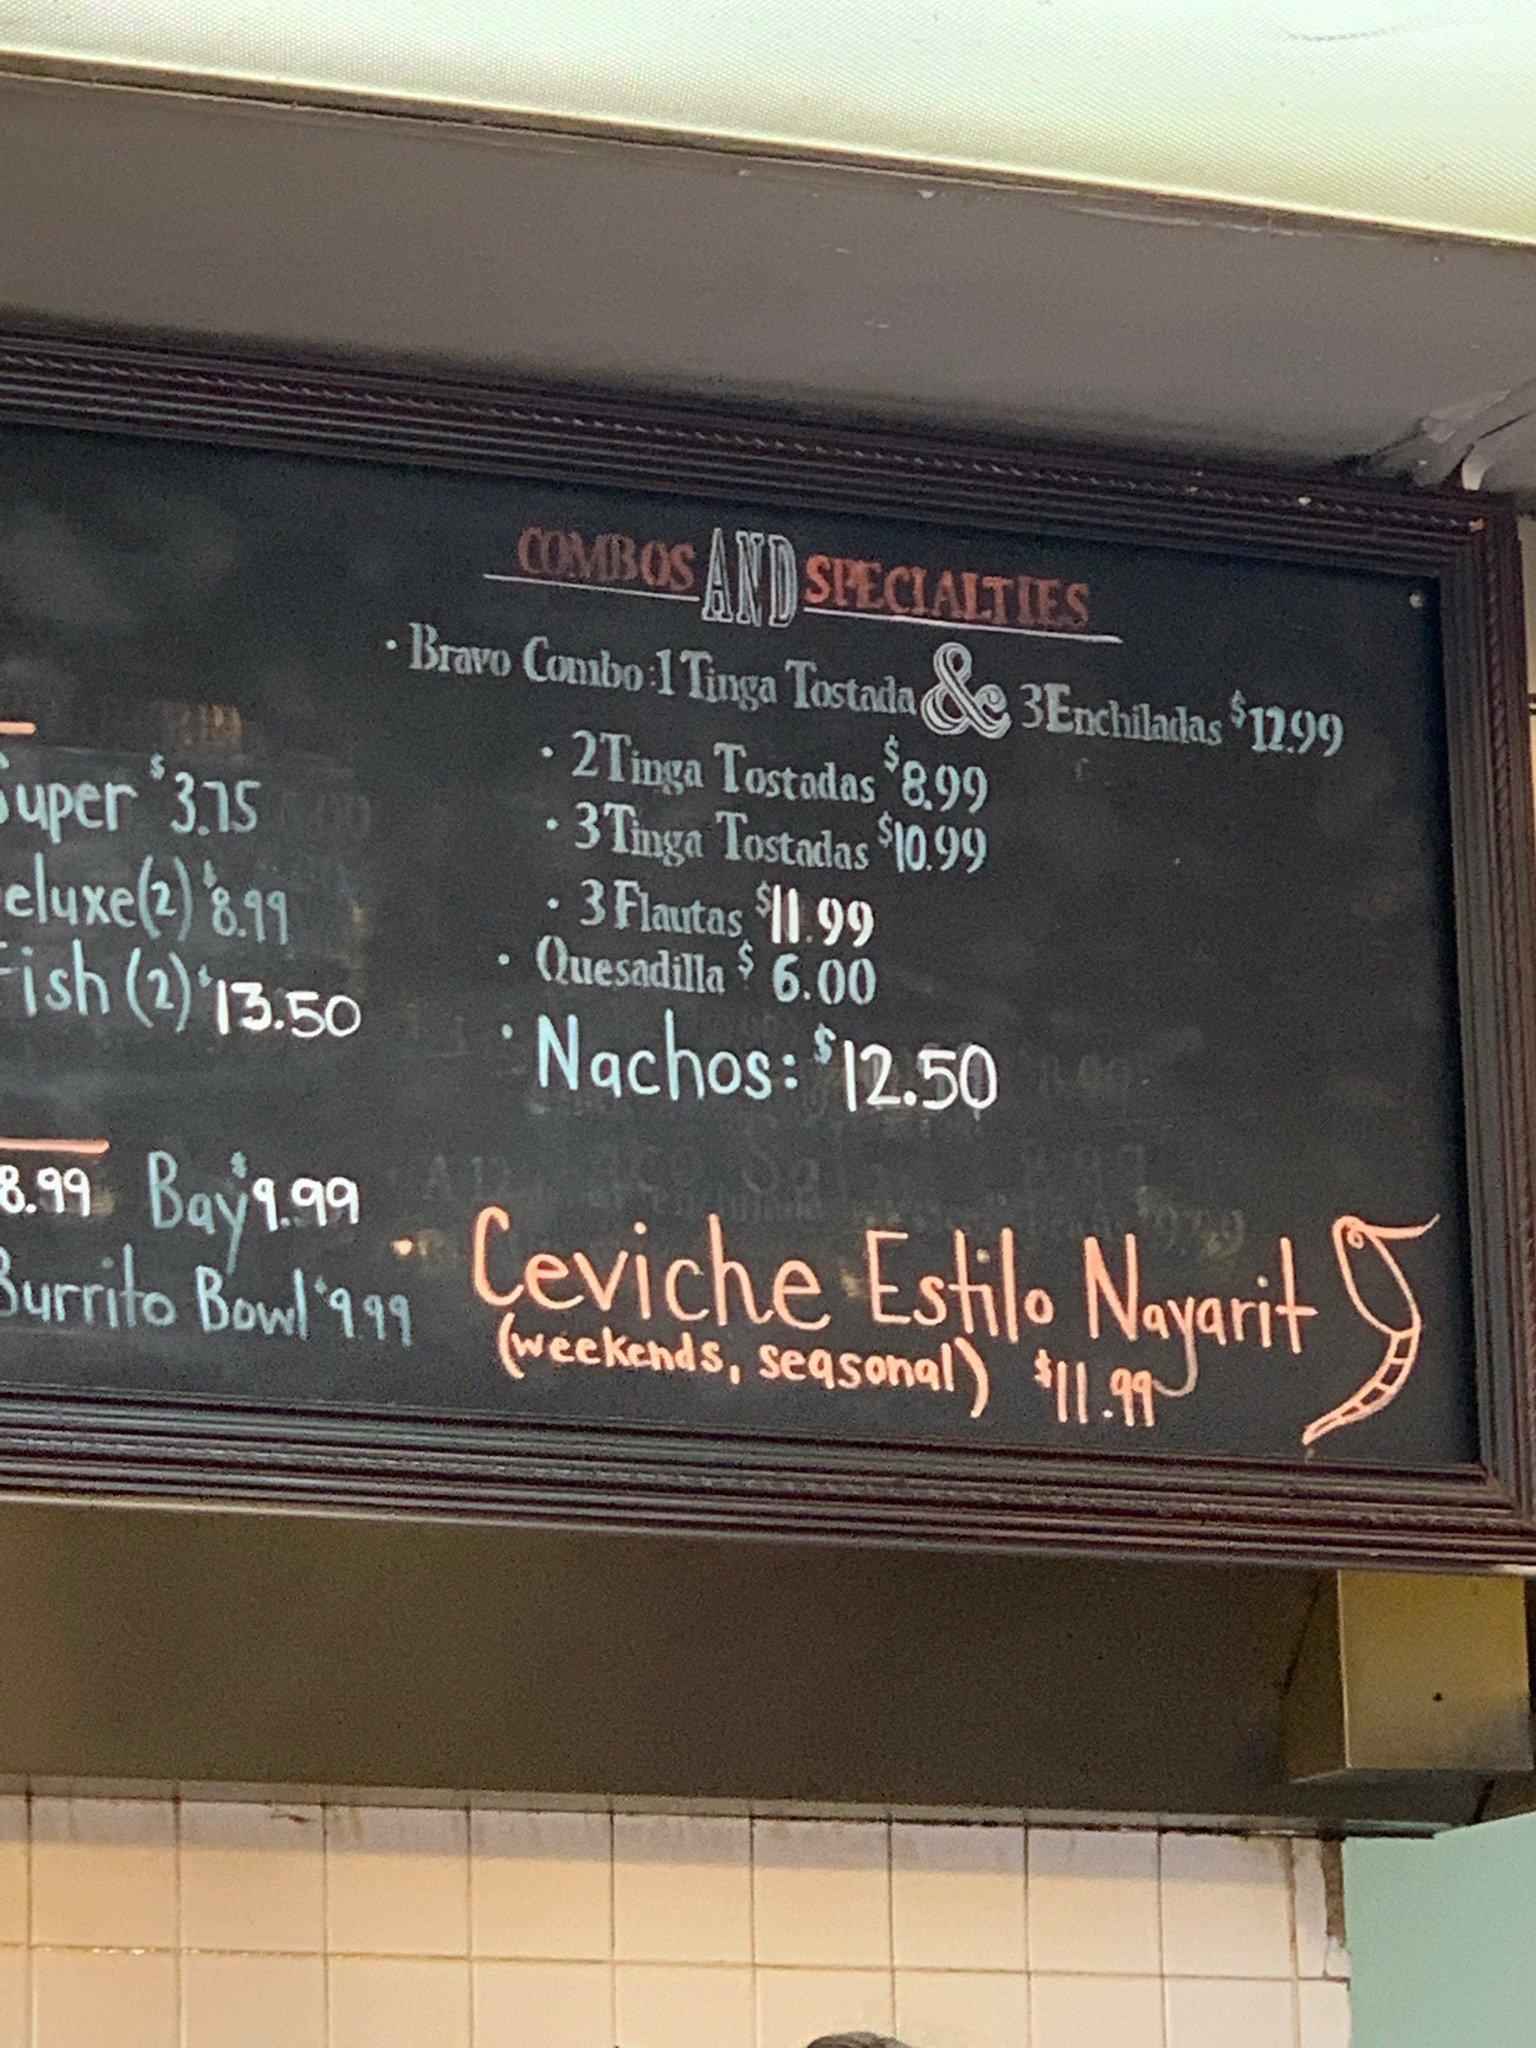 COMBOS AND SPECIALTIES
· Bravo Combo: 1 Tinga Tostada & 3 Enchiladas $12.99
· 2 Tinga Tostadas $8.99
· 3 Tinga Tostadas $10.99
· 3 Flautas $11.99
· Quesadilla $6.00
· Nachos: $12.50
· Ceviche Estilo Nayarit
(weekends, seasonal) $11.99
Super $3.75
eluxe (2) $8.99
Fish (2) $13.50
8.99 Bay $9.99
Burrito Bowl $9.99